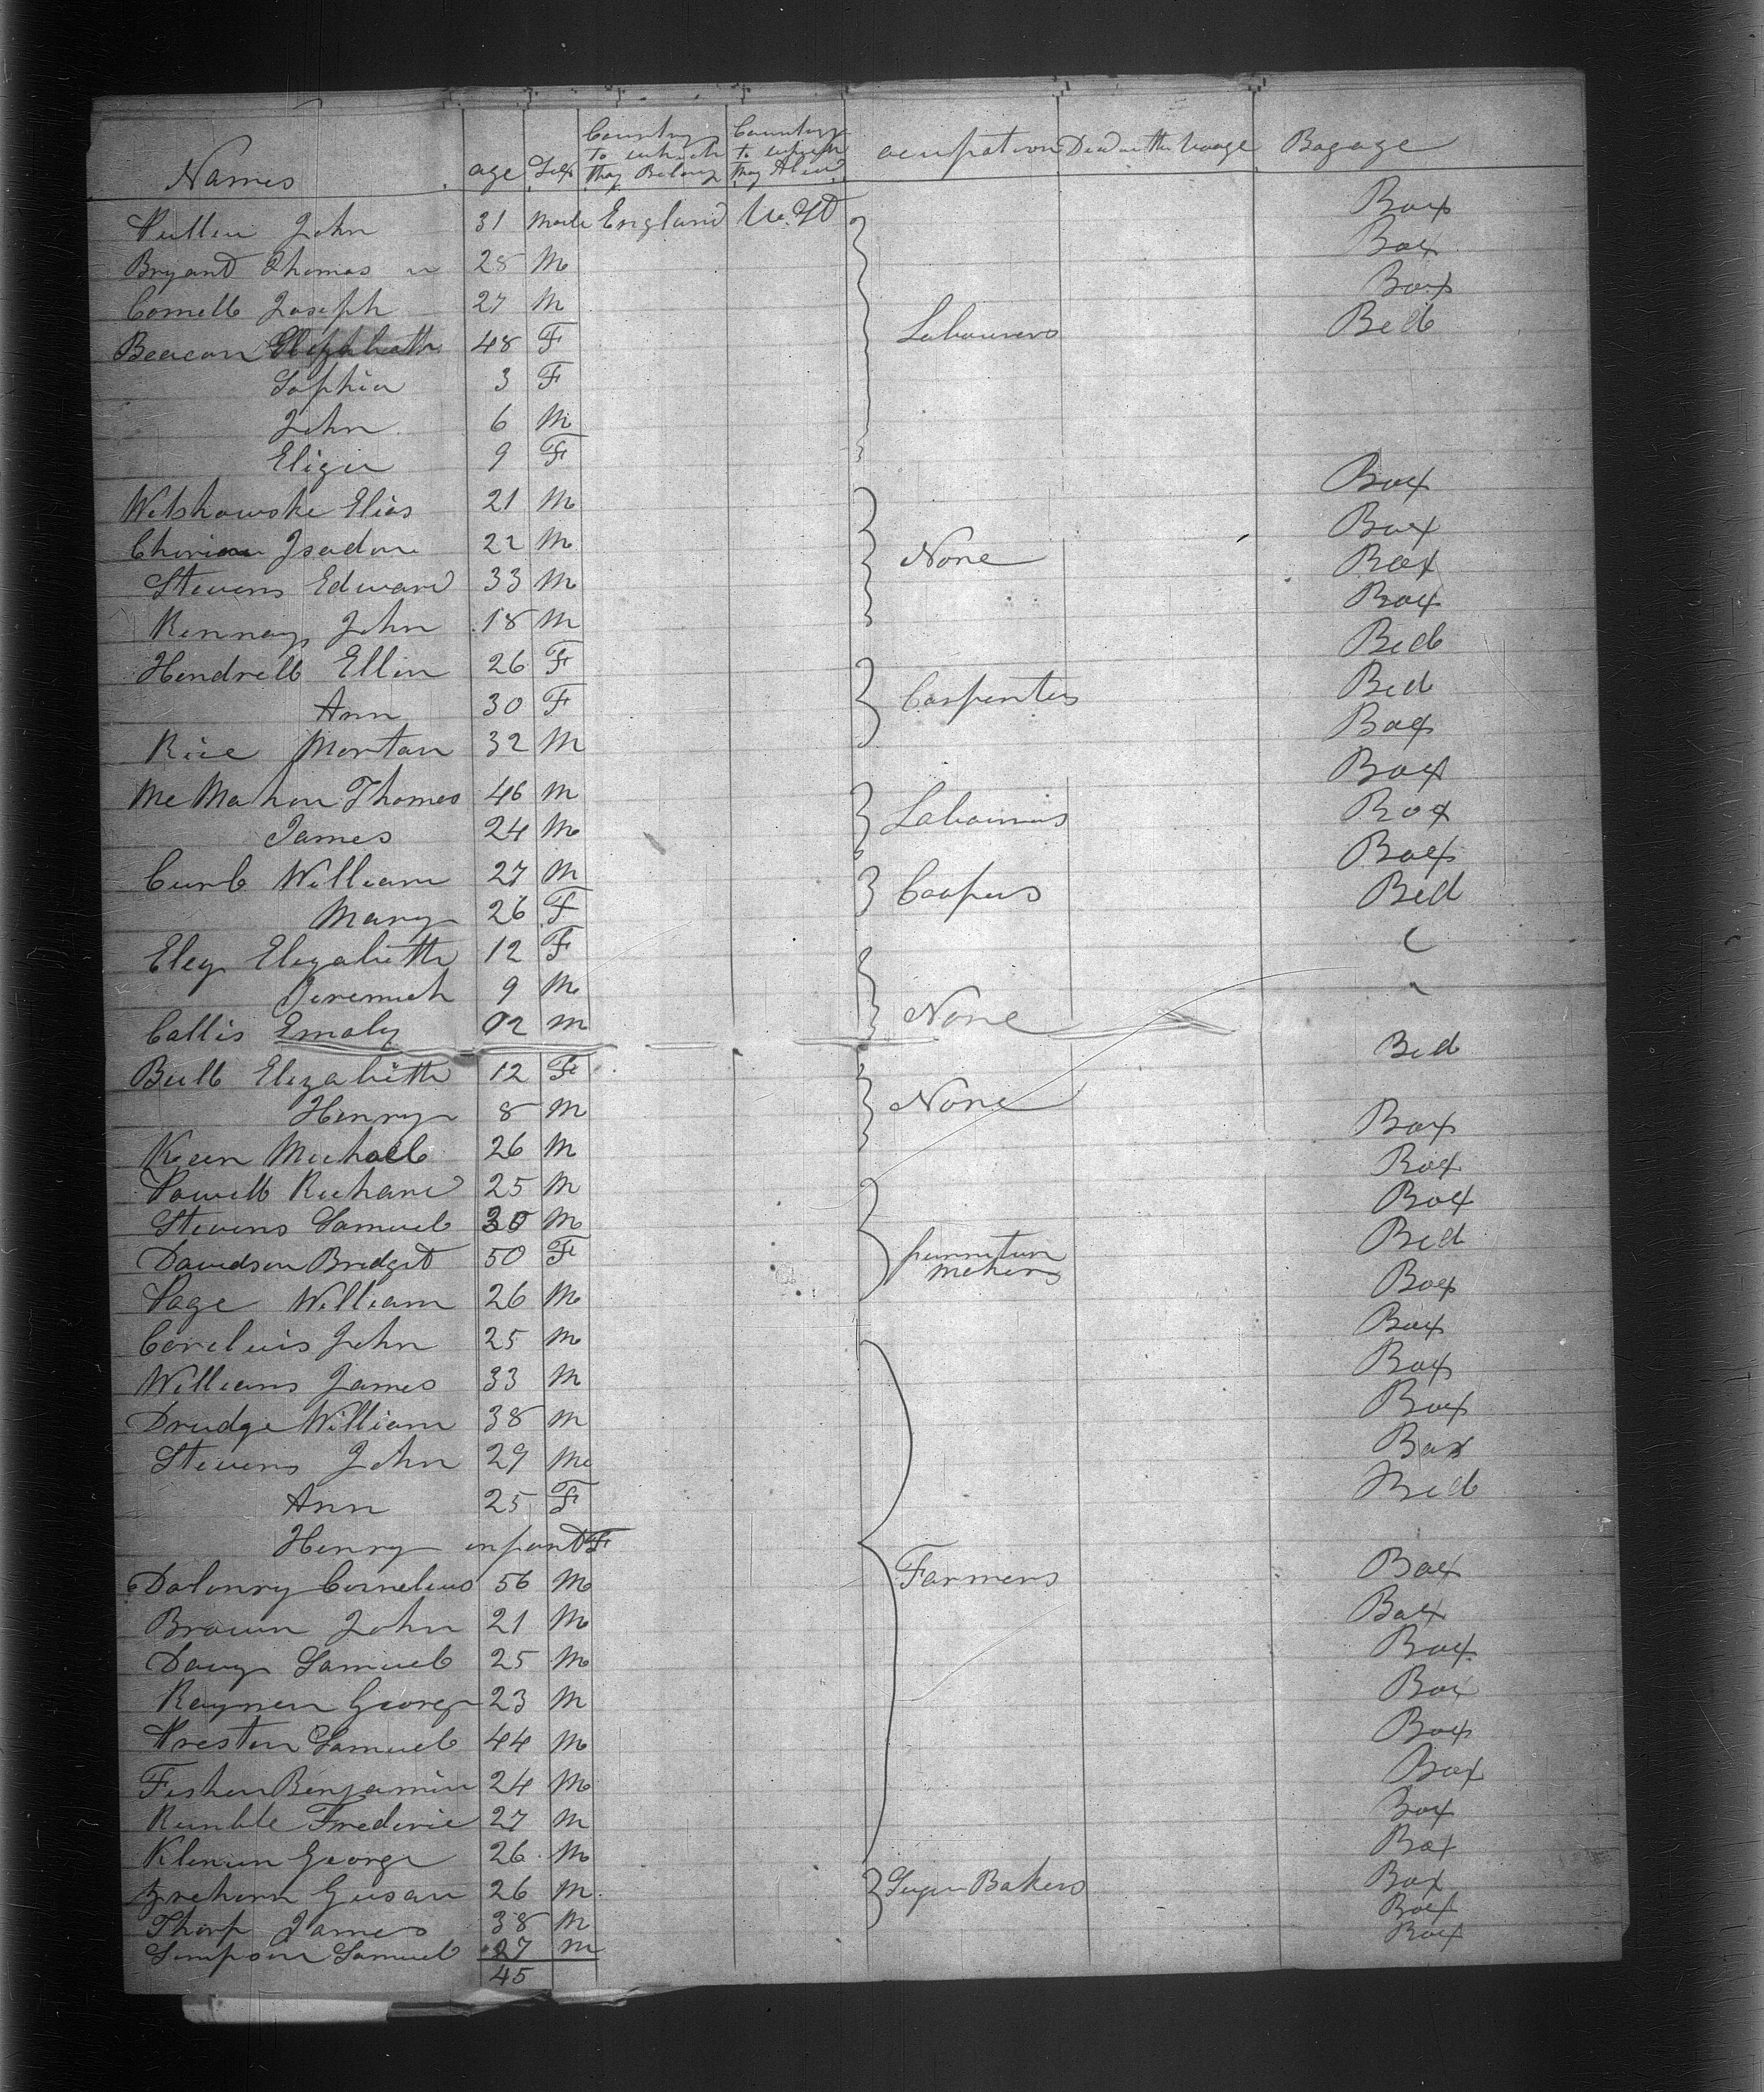 Names age Sex Country to which they Belong Country to which they Alied ocupation Died on the Voage Bagage
Pullen John 31 Male England U. St Box
Bryant Thomas 28 M Box
Cornell Joseph 27 M Box
Beacon Elizabeth 48 F Labourers Bed
Sophia 3 F
John 6 M
Eliza 9 F
Witshowske Elias 21 M Box
Isadore 22 M None Box
Stevens Edward 33 M Box
Kennay John 18 M Box
Hendrell Ellin 26 F Bed
Ann 30 F Carpenters Bed
Rice Mortan 32 M Box
McMahon Thomas 46 M Box
James 24 M Labourers Box
Curl William 27 M Box
Mary 26 F Coopers Bed
Eley Elizabeth 12 F
Jeremiah 9 M
Callis Emaly 02 M None
Bull Elizabeth 12 F Bed
Henry 8 M None
Keen Michael 26 M Box
Powell Richard 25 M Box
Stevens Samuel 30 M Box
Davidson Bridget 50 F furniture makers Bed
Page William 26 M Box
Corelius John 25 M Box
Williams James 33 M Box
Drudge William 38 M Box
Stevens John 29 M Box
Ann 25 F Bed
Henry infant F
Dalonry Cornelius 56 M Farmers Box
Brown John 21 M Box
Davy Samuel 25 M Box
Raymen George 23 M Box
Preston Samuel 44 M Box
Fisher Benjamin 24 M Box
Rumble Frederic 27 M Box
George 26 M Box
26 M Sugar Bakers Box
Thorp James 38 M Box
Simpson Samuel 27 M Box
45